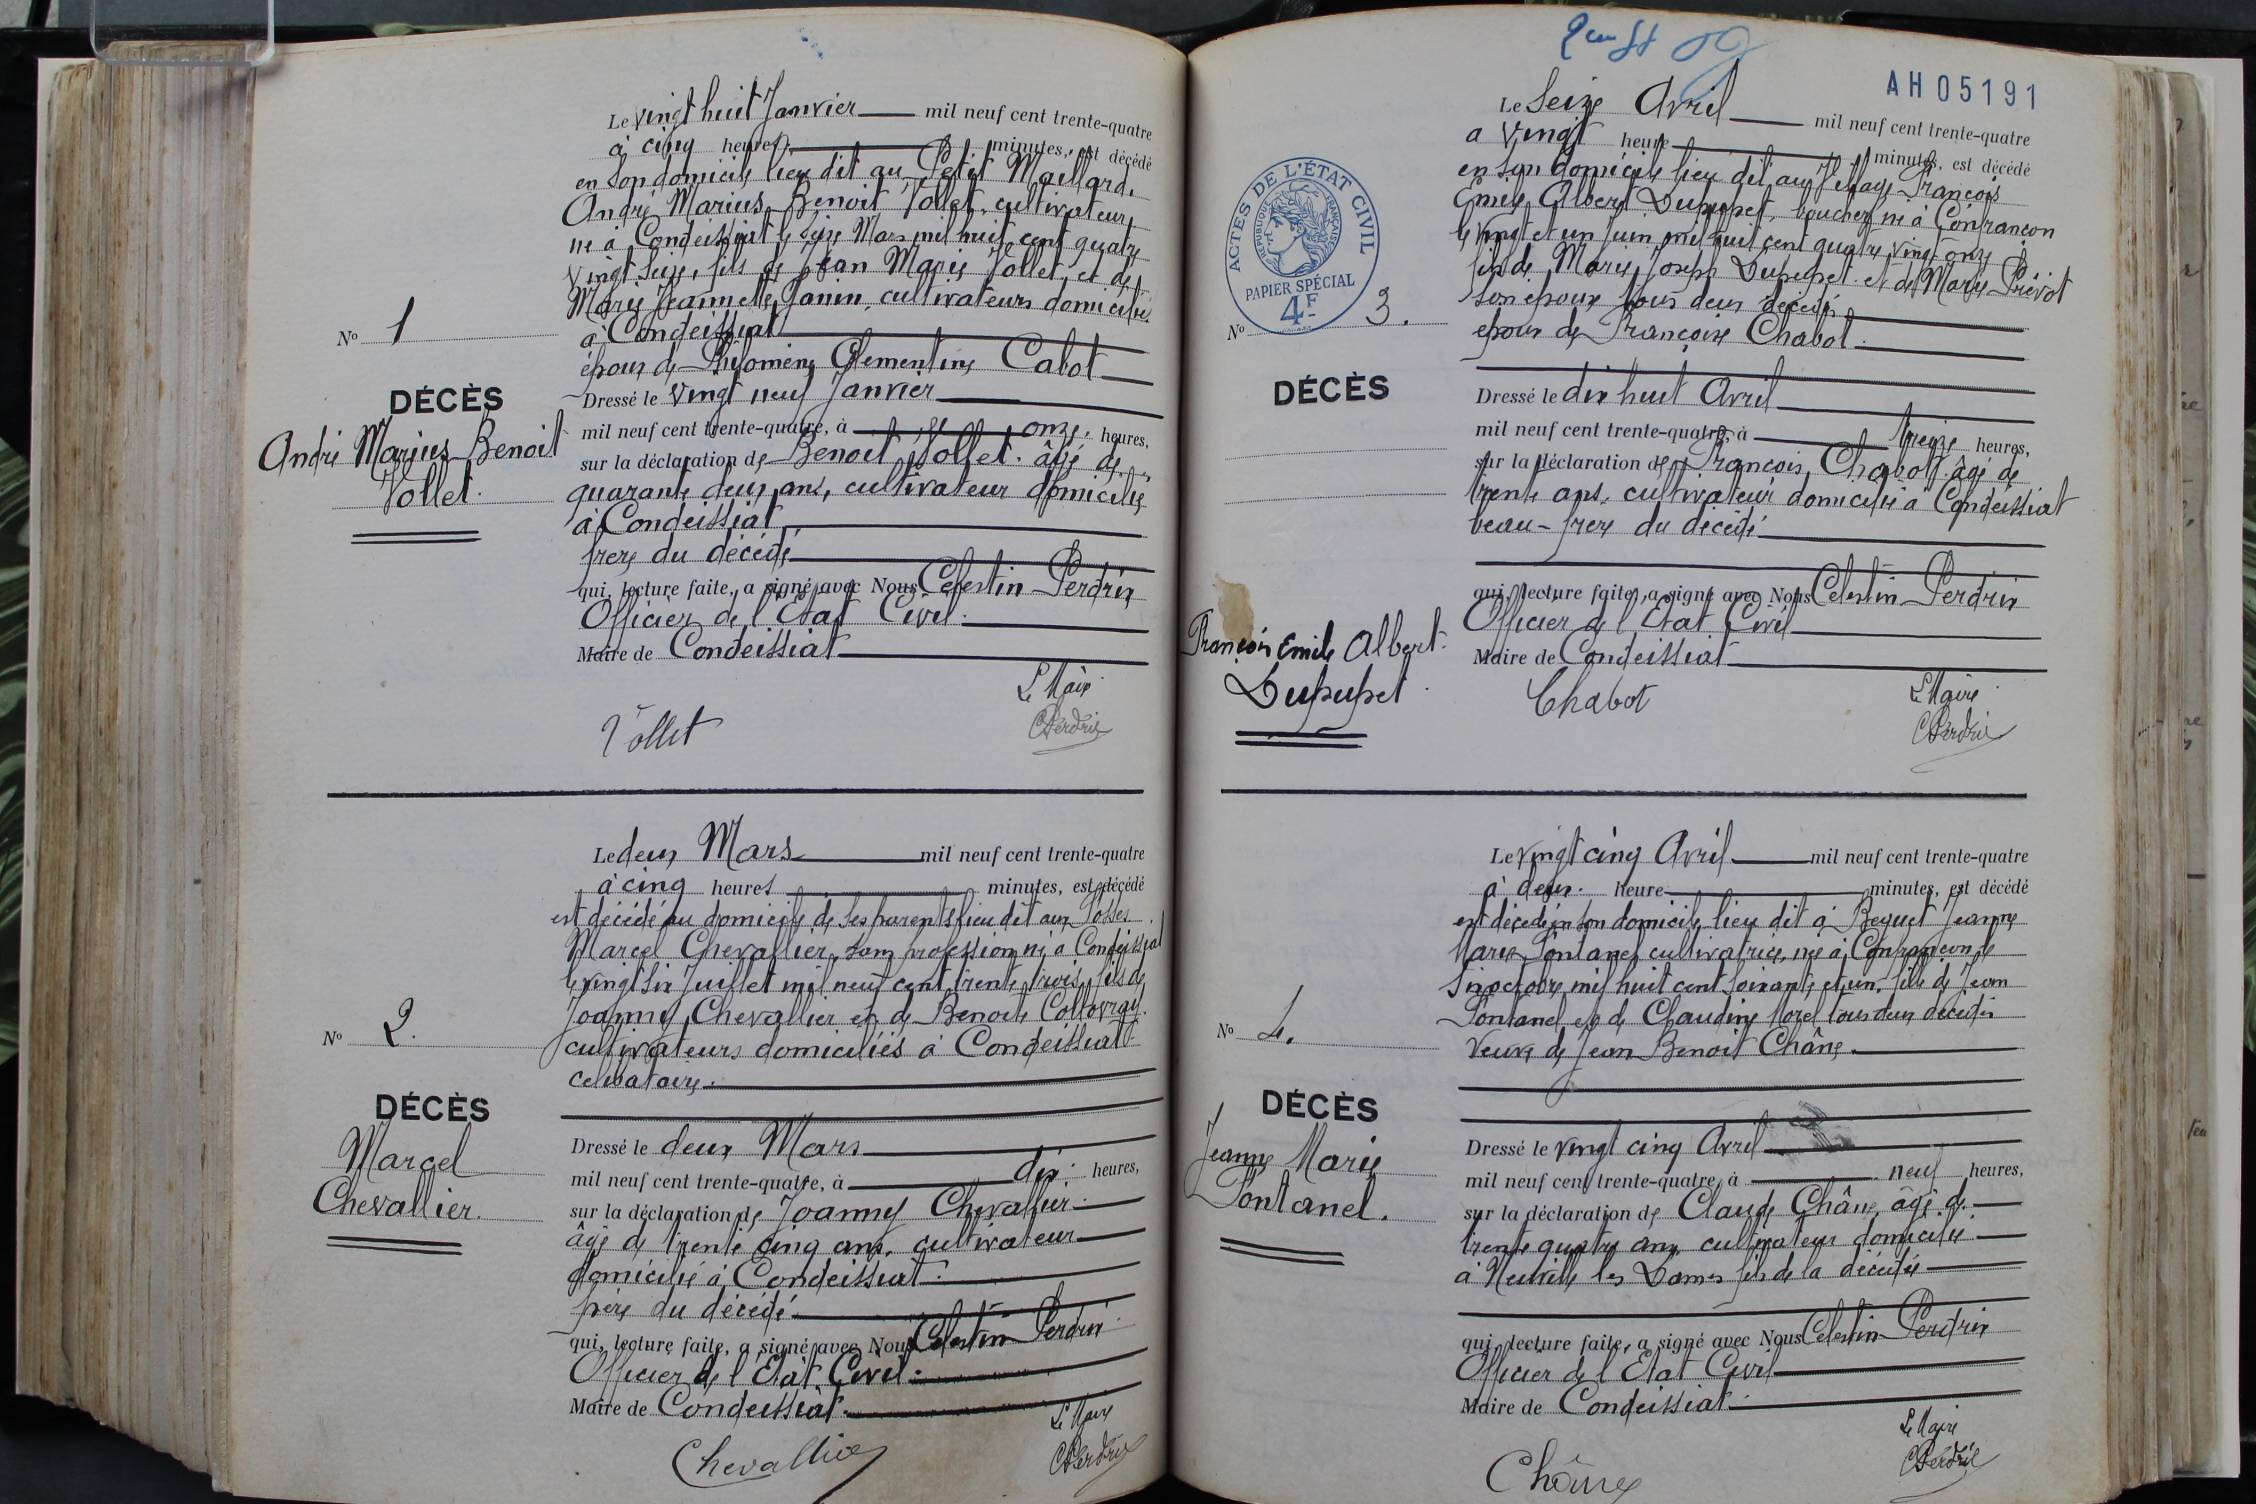 Le vingt huit Janvier mil neuf cent trente-quatre
à cinq heures minutes, est décédé
en son domicile lieu dit au Petit Maillard
André Marius Benoit Vollet, cultivateur,
né à Condeissiat le seize Mars mil huit cent quatre
vingt seize, fils de Jean Marie Vollet et de
Marie Jeannette Janin, cultivateurs domiciliés
à Condeissiat
époux de Philomène Clementine Cabot
Dressé le vingt neuf Janvier
mil neuf cent trente-quatre, à onze heures,
sur la déclaration de Benoit Vollet. âgé de
quarante deux ans, cultivateur domicilié
à Condeissiat
frère du décédé
qui, lecture faite, a signé avec Nous Celestin Perdrix
Officier de l'Etat Civil.
Maire de Condeissiat
Le Maire
Vollet
CPerdrix
No 1
DÉCÈS
André Marius Benoit
Vollet.
Le deux Mars mil neuf cent trente-quatre
à cinq heures minutes, est décédé
est décédé au domicile de ses parents lieu dit aux Fosses
Marcel Chevallier, sans profession né à Condeissiat
le vingt six Juillet mil neuf cent trente trois, fils de
Joanny Chevallier et de Benoite Collovray.
cultivateurs domiciliés à Condeissiat.
celibataire.
Dressé le deux Mars
mil neuf cent trente-quatre, à dix heures,
sur la déclaration de Joanny Chevallier
âgé de trente cinq ans, cultivateur
domicilié à Condeissiat
père du décédé
qui, lecture faite, a signé avec Nous Celestin Perdrix
Officier de l'Etat Civil.
Maire de Condeissiat.
Le Maire
Chevallier
CPerdrix
No 2.
DÉCÈS
Marcel
Chevallier.
AH05191
ACTES DE L'ÉTAT CIVIL
RÉPUBLIQUE FRANÇAISE
PAPIER SPÉCIAL
4F
Le Seize Avril mil neuf cent trente-quatre
à vingt heure minutes, est décédé
en son domicile lieu dit au François
Emile Albert Dupupet, boucher né à Confrançon
le vingt et un Juin mil huit cent quatre vingt onze
fils de Marie Joseph Dupupet et de Marie Prévot
son epoux tous deux décédés
époux de Françoise Chabot.
Dressé le dix huit Avril
mil neuf cent trente-quatre, à treize heures,
sur la déclaration de François Chabot âgé de
trente ans, cultivateur domicilié à Condeissiat
beau-frère du décédé
qui, lecture faite, a signé avec Nous Celestin Perdrix
Officier de l'Etat Civil
Maire de Condeissiat
Le Maire
Chabot
CPerdrix
No 3.
DÉCÈS
François Emile Albert.
Dupupet
Le vingt cinq Avril mil neuf cent trente-quatre
à deux heure minutes, est décédé
est décédée en son domicile, lieu dit à Bequet Jeanne
Marie Pontanel cultivatrice, née à Confrançon le
six octobre mil huit cent soixante et un, fille de Jean
Pontanel et de Claudine Morel tous deux décédés
Veuve de Jean Benoit Châne.
Dressé le vingt cinq Avril
mil neuf cent trente-quatre, à neuf heures,
sur la déclaration de Claude Châne, âgé de
trente quatre ans cultivateur domicilié
à Neuville les Dames fils de la décédée
qui, lecture faite, a signé avec Nous Celestin Perdrix
Officier de l'Etat Civil
Maire de Condeissiat.
Le Maire
Châne
CPerdrix
No 4.
DÉCÈS
Jeanne Marie
Pontanel.